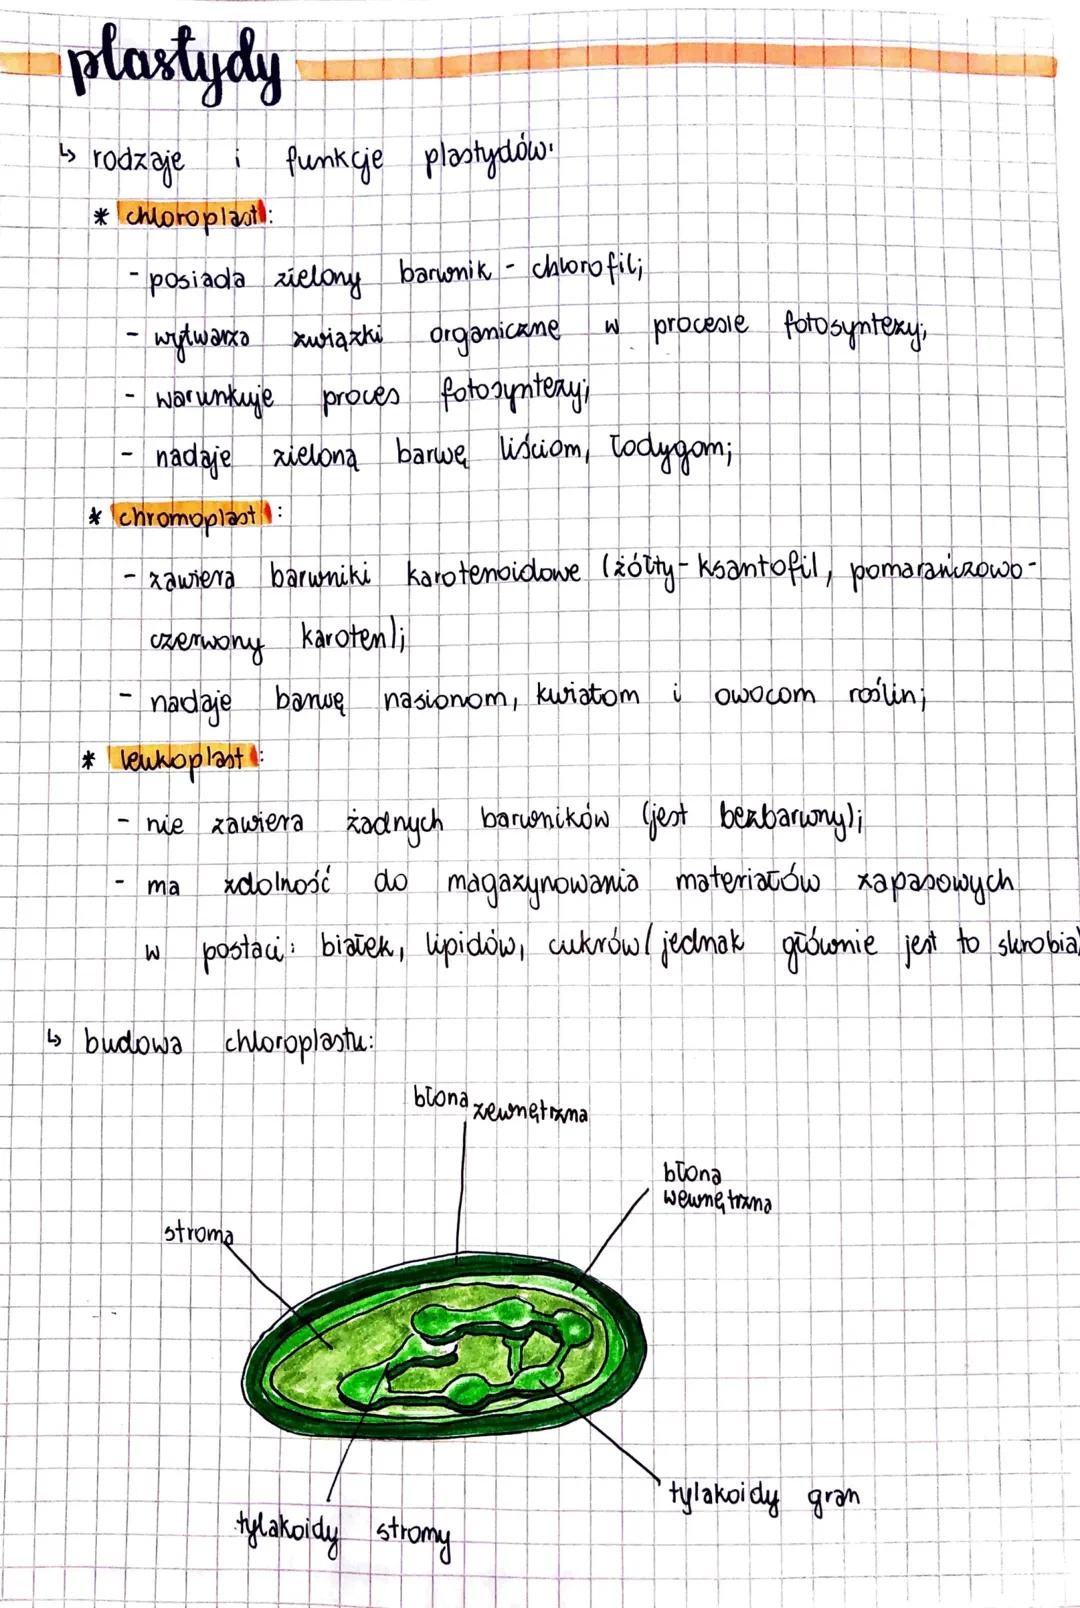 plastydy
↳ rodzaje i funkcje plastydów:
* chloroplast:
- posiada zielony barwnik - chlorofil;
- wytwarza związki organiczne w procesie fotosyntezy;
- warunkuje proces fotosyntezy;
- nadaje zieloną barwę liściom, łodygom;
* chromoplast:
- zawiera barwniki karotenoidowe (żółty - ksantofil, pomarańczowo-
czerwony karoten);
- nadaje barwę nasionom, kwiatom i owocom roślin;
* leukoplast:
- nie zawiera żadnych barwników (jest bezbarwny);
- ma zdolność do magazynowania materiałów zapasowych
w postaci: białek, lipidów, cukrów (jednak głównie jest to skrobia)
↳ budowa chloroplastu:
błona zewnętrzna
błona
wewnętrzna
stroma
tylakoidy gran
tylakoidy stromy